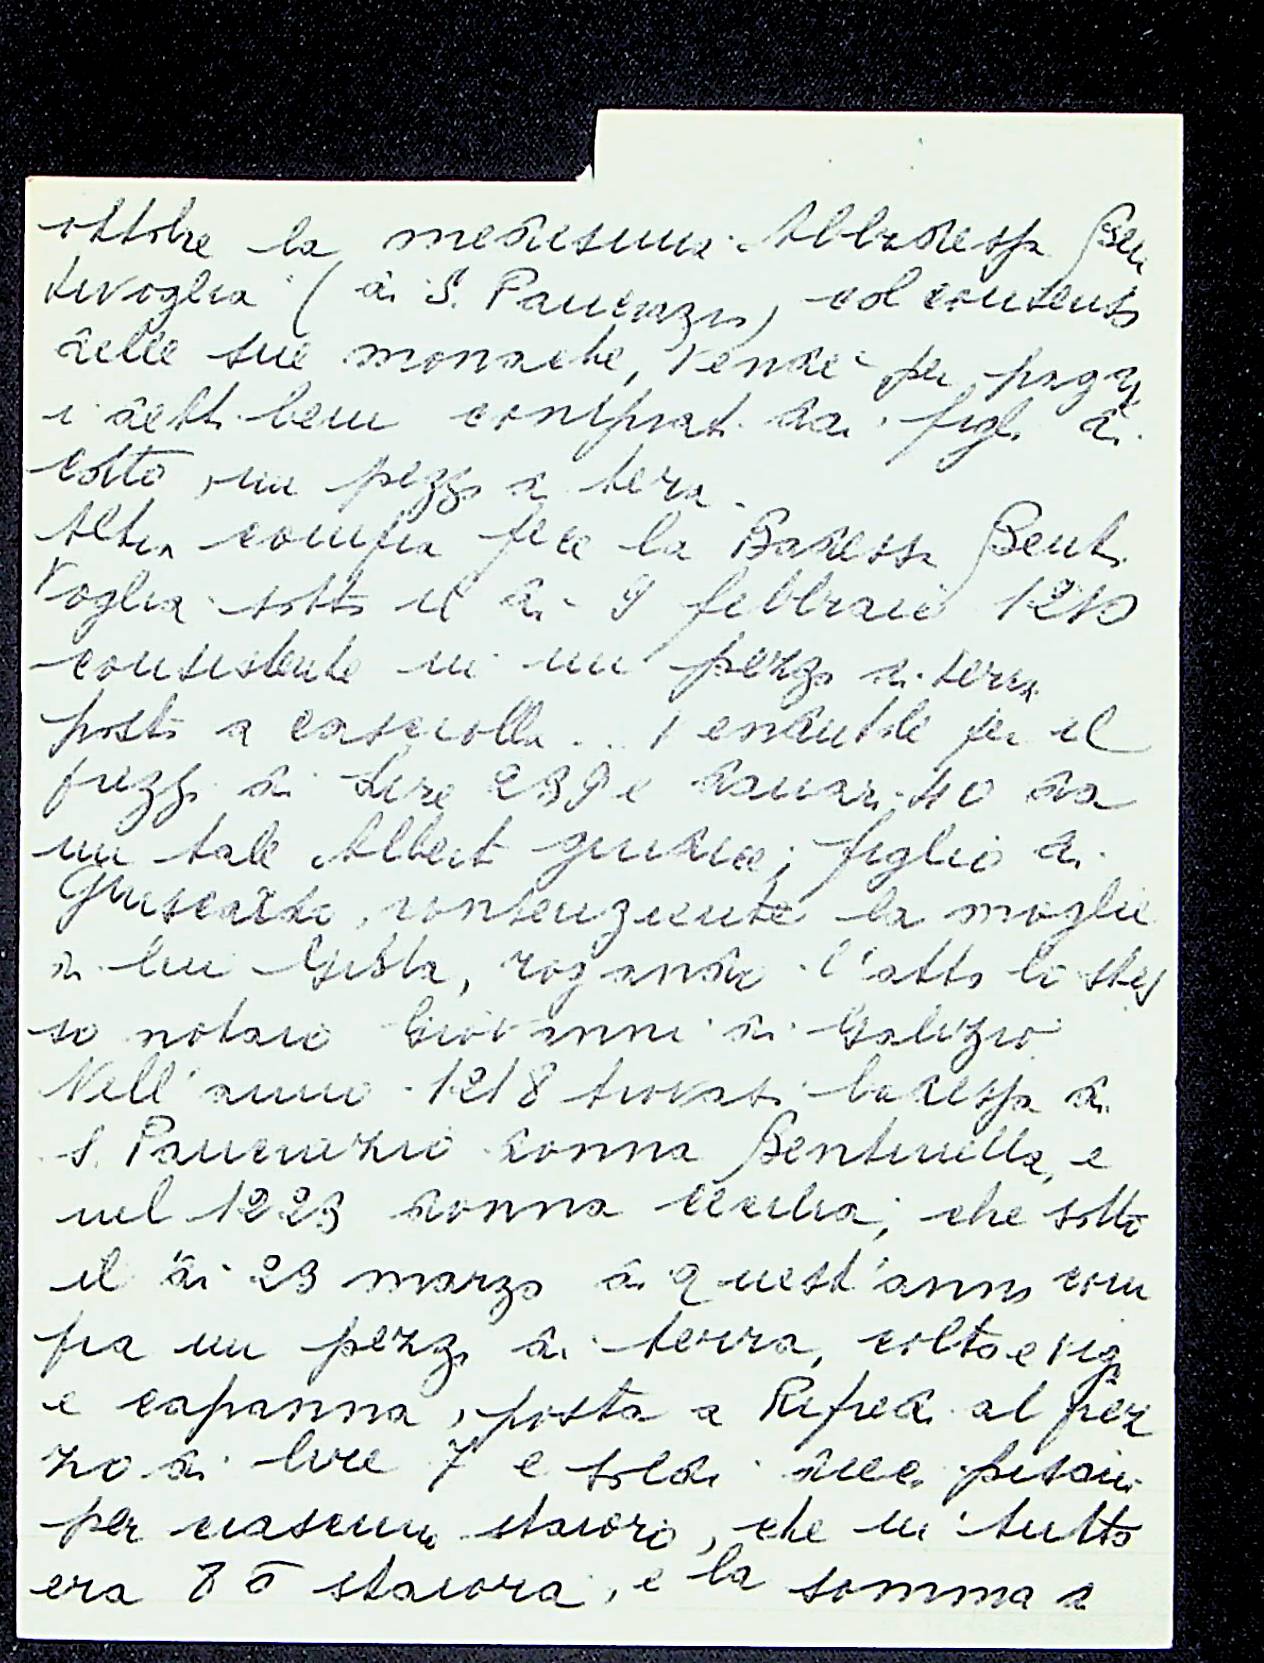 ottobre la medesima Abbadessa Ben
tivoglia (di S. Pancrazio) col consenso
delle sue monache, vende per pagar
i detti beni comprati dai figli di
cotto, un pezzo di terra.
Altra compra fece la Badessa Benti
voglia sotto il dì 9 febbraio 1210
consistente in un pezzo di terra
posto a Casciolla... vendutole per il
prezzo di Lire 239 e danari 40 da
un tale Albert giudice, figlio di
Guiscardo, consenziente la moglie
di lui Gisla, rogando l'atto lo stes
so notaio Giovanni di Galizio
Nell'anno 1218 trovasi badessa di
S. Pancrazio donna Bentivella, e
nel 1223 donna Cecilia, che sotto
il dì 23 marzo di quest'anno com
pra un pezzo di terra, colta e vig
e capanna, posta a Rifredi al prez
zo di lire 7 e soldi dieci pisani
per ciascuno staioro, che in tutto
era staiora, e la somma a